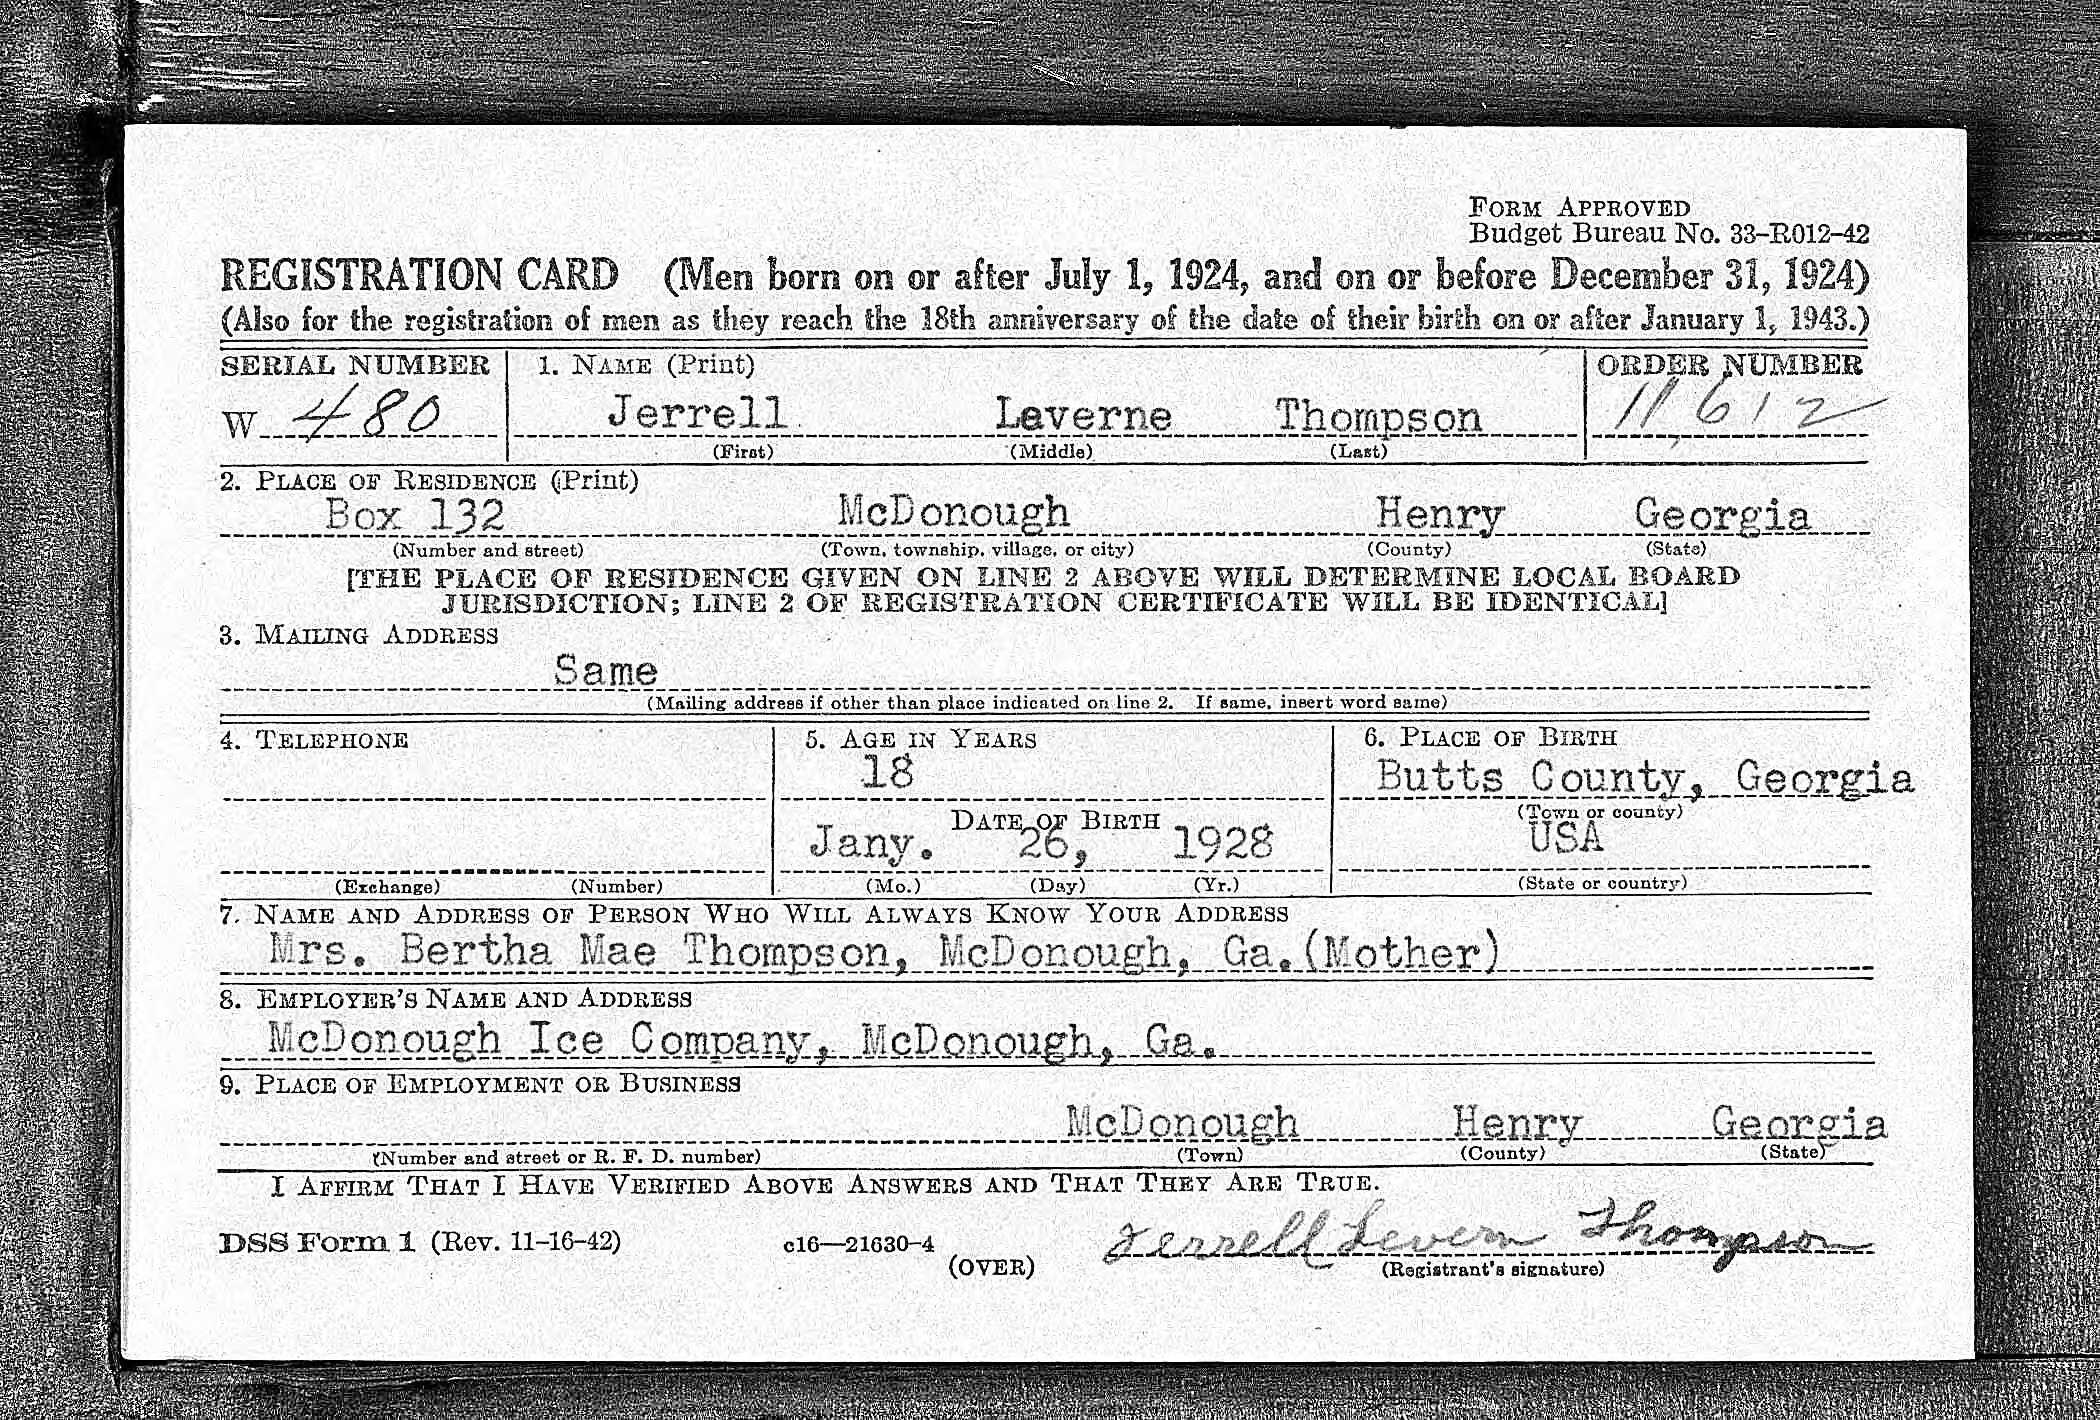 FORM APPROVED
Budget Bureau No. 33-R012-42
REGISTRATION CARD (Men born on or after July 1, 1924, and on or before December 31, 1924)
(Also for the registration of men as they reach the 18th anniversary of the date of their birth on or after January 1, 1943.)
SERIAL NUMBER 1. NAME (Print) ORDER NUMBER
W 480 Jerrell Laverne Thompson 11,612
(First) (Middle) (Last)
2. PLACE OF RESIDENCE (Print)
Box 132 McDonough Henry Georgia
(Number and street) (Town, township, village, or city) (County) (State)
[THE PLACE OF RESIDENCE GIVEN ON LINE 2 ABOVE WILL DETERMINE LOCAL BOARD
JURISDICTION; LINE 2 OF REGISTRATION CERTIFICATE WILL BE IDENTICAL]
3. MAILING ADDRESS
Same
(Mailing address if other than place indicated on line 2. If same, insert word same)
4. TELEPHONE 5. AGE IN YEARS 6. PLACE OF BIRTH
18 Butts County, Georgia
DATE OF BIRTH (Town or county)
Jany. 26, 1928 USA
(Exchange) (Number) (Mo.) (Day) (Yr.) (State or country)
7. NAME AND ADDRESS OF PERSON WHO WILL ALWAYS KNOW YOUR ADDRESS
Mrs. Bertha Mae Thompson, McDonough, Ga.(Mother)
8. EMPLOYER'S NAME AND ADDRESS
McDonough Ice Company, McDonough, Ga.
9. PLACE OF EMPLOYMENT OR BUSINESS
McDonough Henry Georgia
(Number and street or R. F. D. number) (Town) (County) (State)
I AFFIRM THAT I HAVE VERIFIED ABOVE ANSWERS AND THAT THEY ARE TRUE.
DSS Form 1 (Rev. 11-16-42) c16—21630-4 Jerrell Levern Thompson
(OVER) (Registrant's signature)